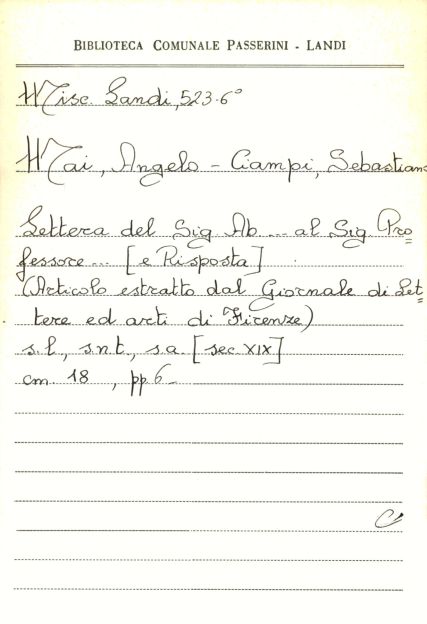 BIBLIOTECA COMUNALE PASSERINI - LANDI
Misc. Landi, 523.6°
Mai, Angelo - Ciampi, Sebastiano
Lettera del Sig Ab ... al Sig Pro=
fessore ... [e Risposta]
(Articolo estratto dal Giornale di Let=
tere ed arti di Firenze)
s.l., s.n.t., s.a. [sec. XIX]
cm. 18 , pp. 6_